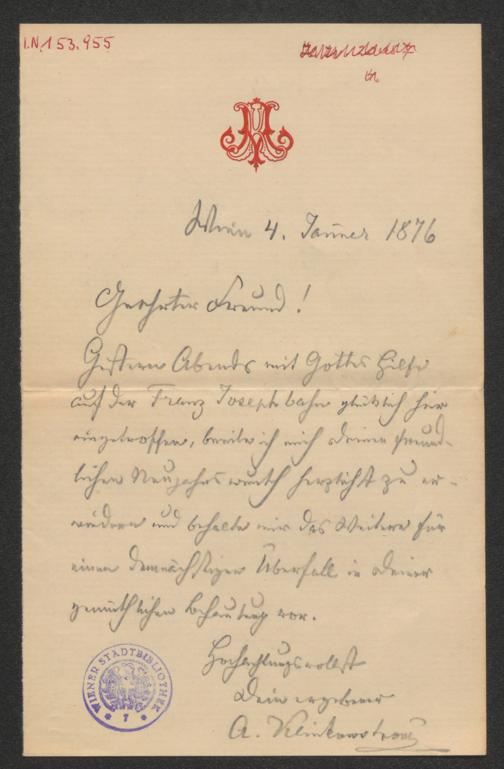 I.N. 153.955
Wien 4. Jänner 1876
Geehrter Freund!
Gestern Abends mit Gottes Hilfe
auf der Franz Josephsbahn glücklich hier
eingetroffen, beeile ich mich Deinen freund-
lichen Neujahrswunsch herzlichst zu er-
wiedern und behalte mir das Weitere für
einen demnächstigen Überfall in Deiner
gemüthlichen Behausung vor.
Hochachtungsvollst
Dein ergebener
A. Klinkowström
WIENER STADTBIBLIOTHEK